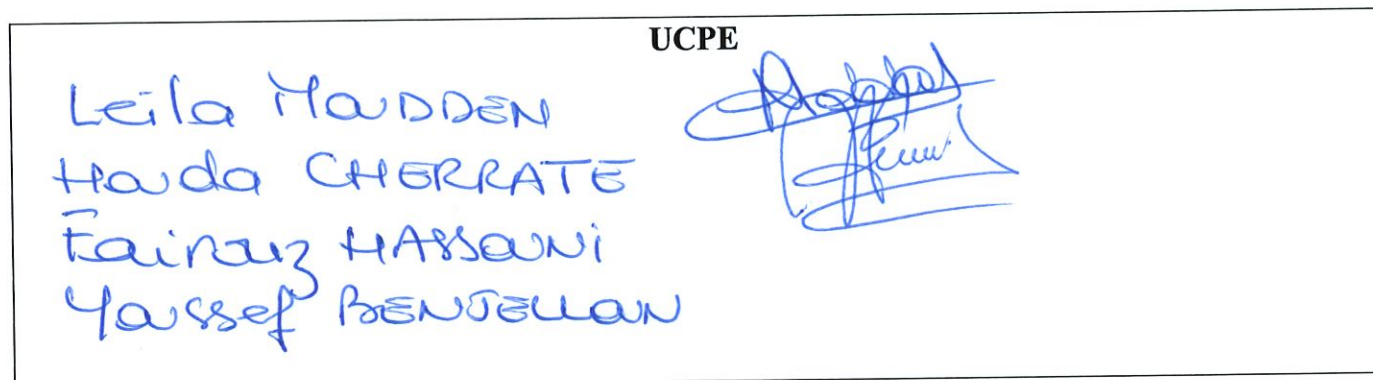 UCPE
Leila MouDDEN
Houda CHERRATE
Fairouz HASSouNi
Youssef BENJELLouN